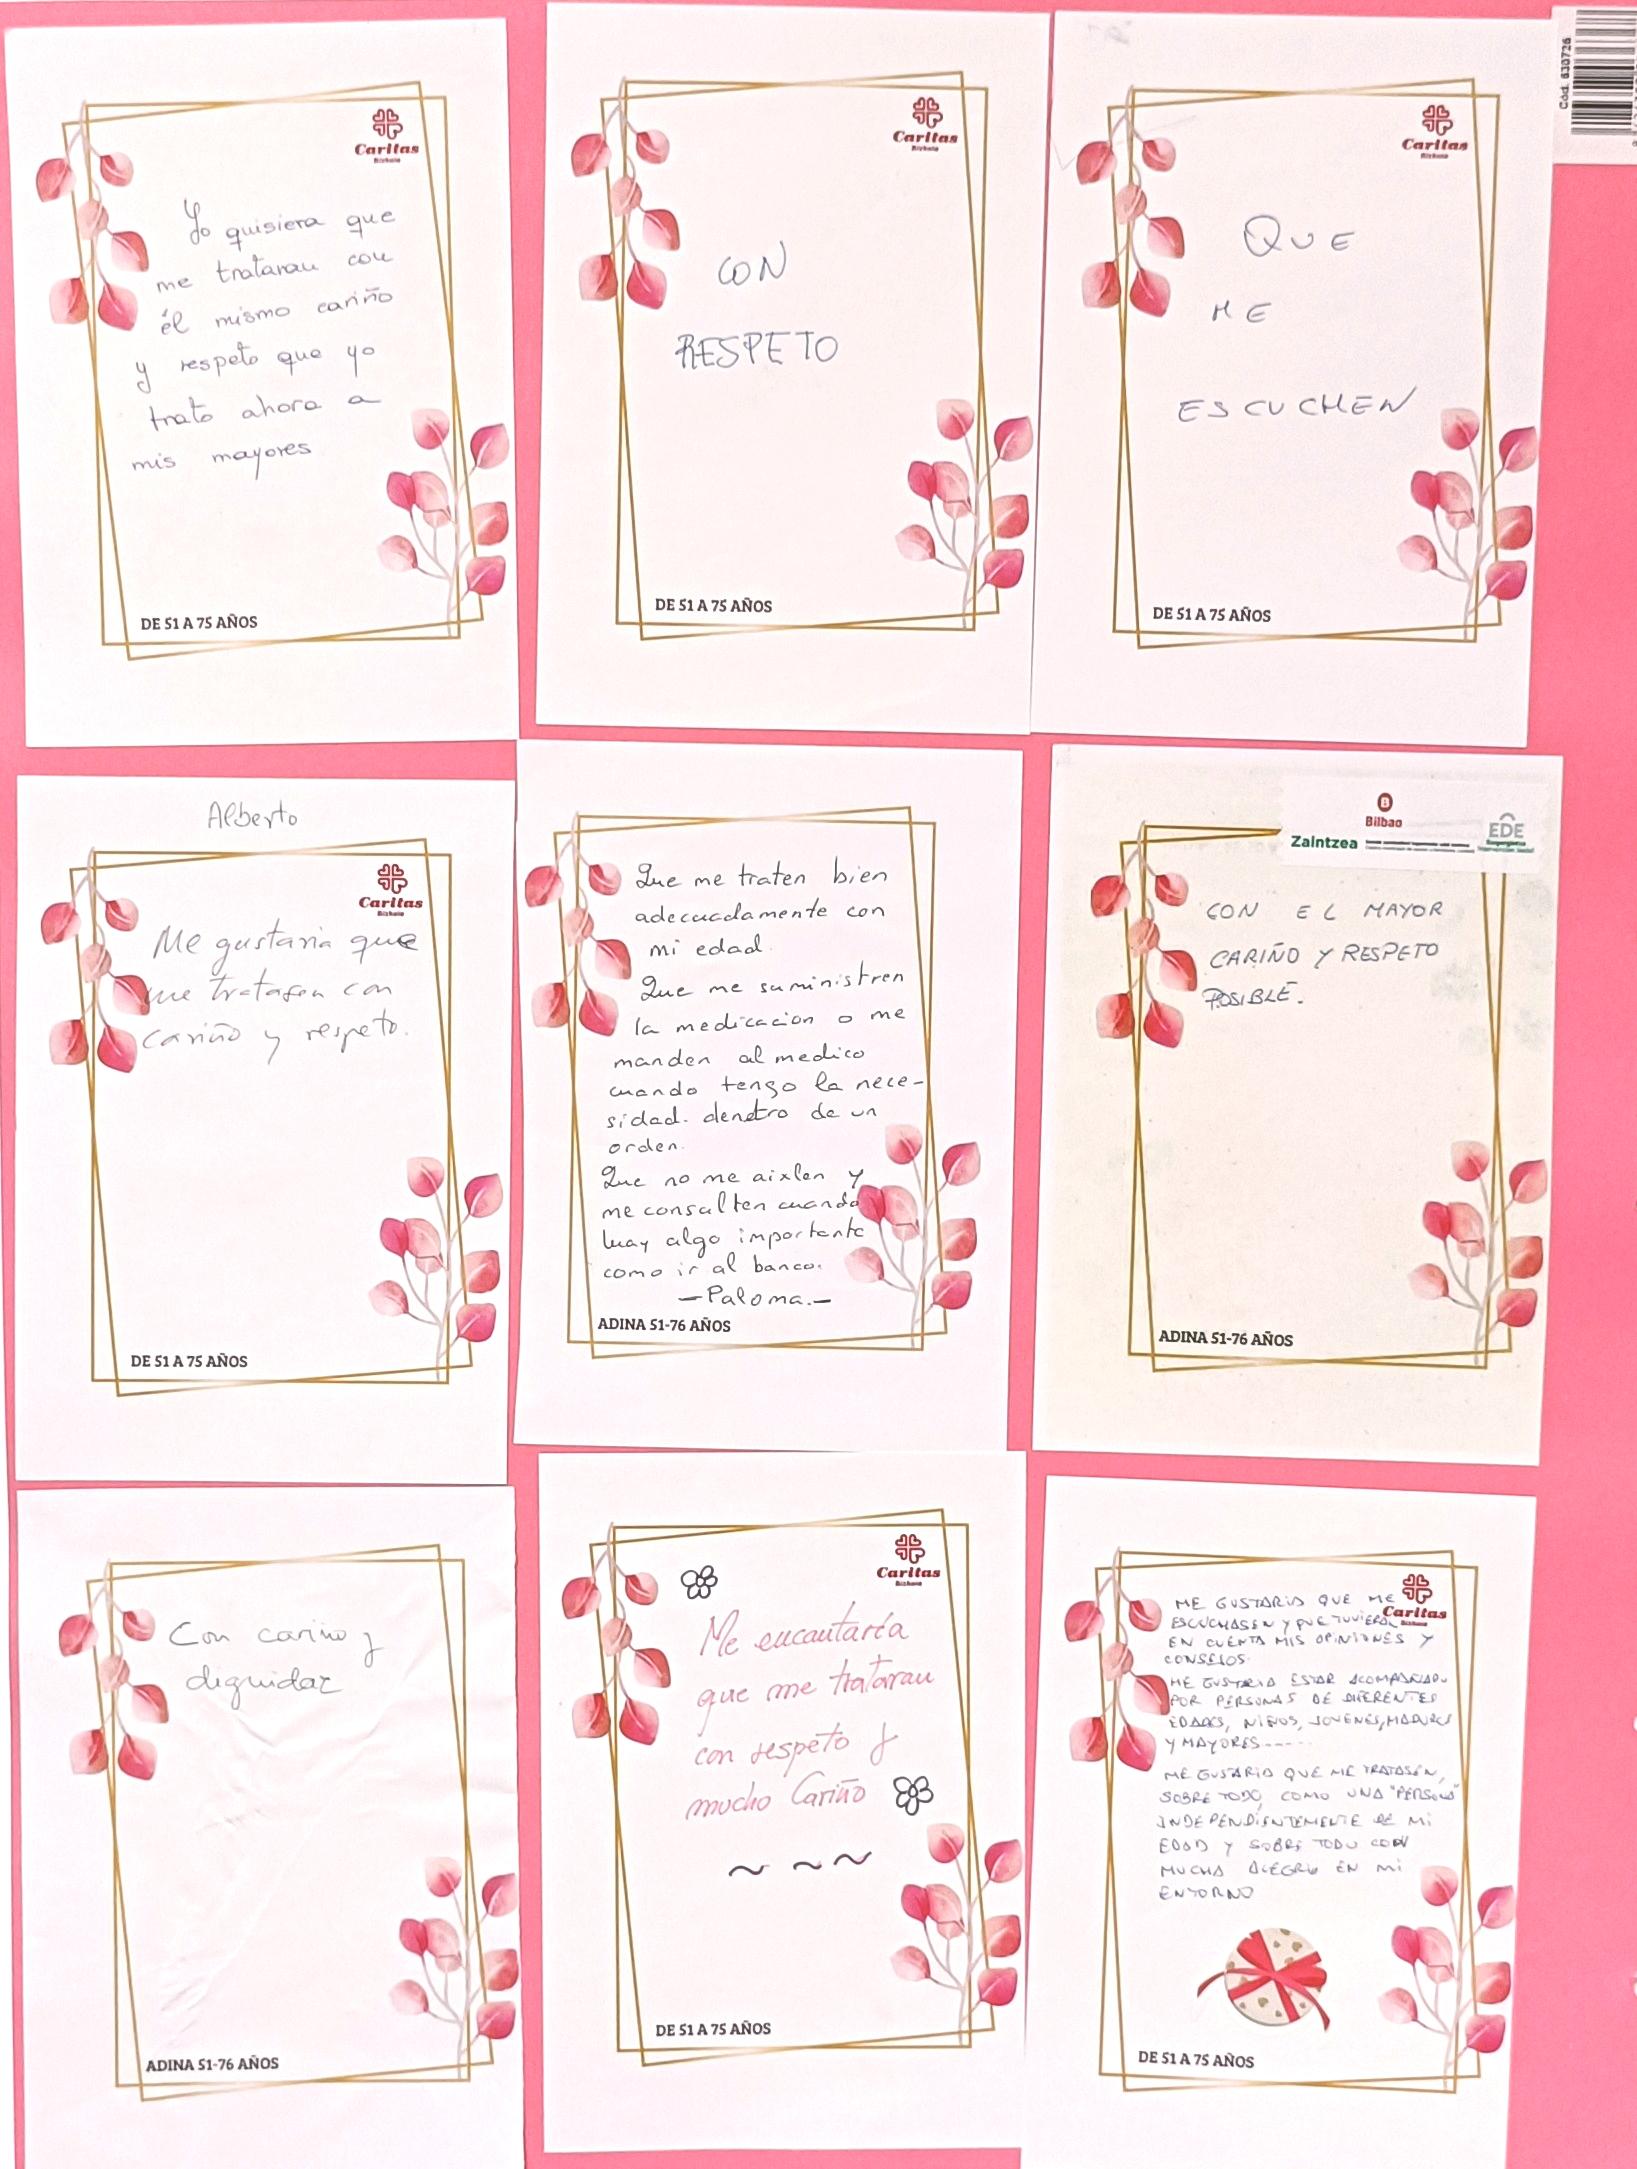 Caritas
Bizkaia
Yo quisiera que
me trataran con
él mismo cariño
y respeto que yo
trato ahora a
mis mayores
DE 51 A 75 AÑOS
Caritas
Bizkaia
CON
RESPETO
DE 51 A 75 AÑOS
Caritas
Bizkaia
QUE
ME
ESCUCHEN
DE 51 A 75 AÑOS
Cód. 630726
Alberto
Caritas
Bizkaia
Me gustaria que
me tratasen con
cariño y respeto.
DE 51 A 75 AÑOS
Que me traten bien
adecuadamente con
mi edad.
Que me suministren
la medicacion o me
manden al medico
cuando tengo la nece-
sidad. denetro de un
orden.
Que no me aixlen y
me consulten cuando
huay algo importante
como ir al banco.
-Paloma.-
ADINA 51-76 AÑOS
Bilbao
Zaintzea
EDE
CON EL MAYOR
CARIÑO Y RESPETO
POSIBLE.
ADINA 51-76 AÑOS
Con cariño y
dignidaz
ADINA 51-76 AÑOS
Caritas
Bizkaia
Me encantaría
que me trataran
con respeto y
mucho Cariño
DE 51 A 75 AÑOS
Caritas
ME GUSTARIA QUE ME
ESCUCHASEN Y QUE TUVIERAN
EN CUENTA MIS OPINIONES Y
CONSEJOS.
ME GUSTARIA ESTAR ACOMPAÑADO
POR PERSONAS DE DIFERENTES
EDADES, NIÑOS, JOVENES, MADUROS
Y MAYORES-----
ME GUSTARIA QUE ME TRATASEN,
SOBRE TODO, COMO UNA "PERSONA"
INDEPENDIENTEMENTE DE MI
EDAD Y SOBRE TODO CON
MUCHA ALEGRIA EN MI
ENTORNO
DE 51 A 75 AÑOS